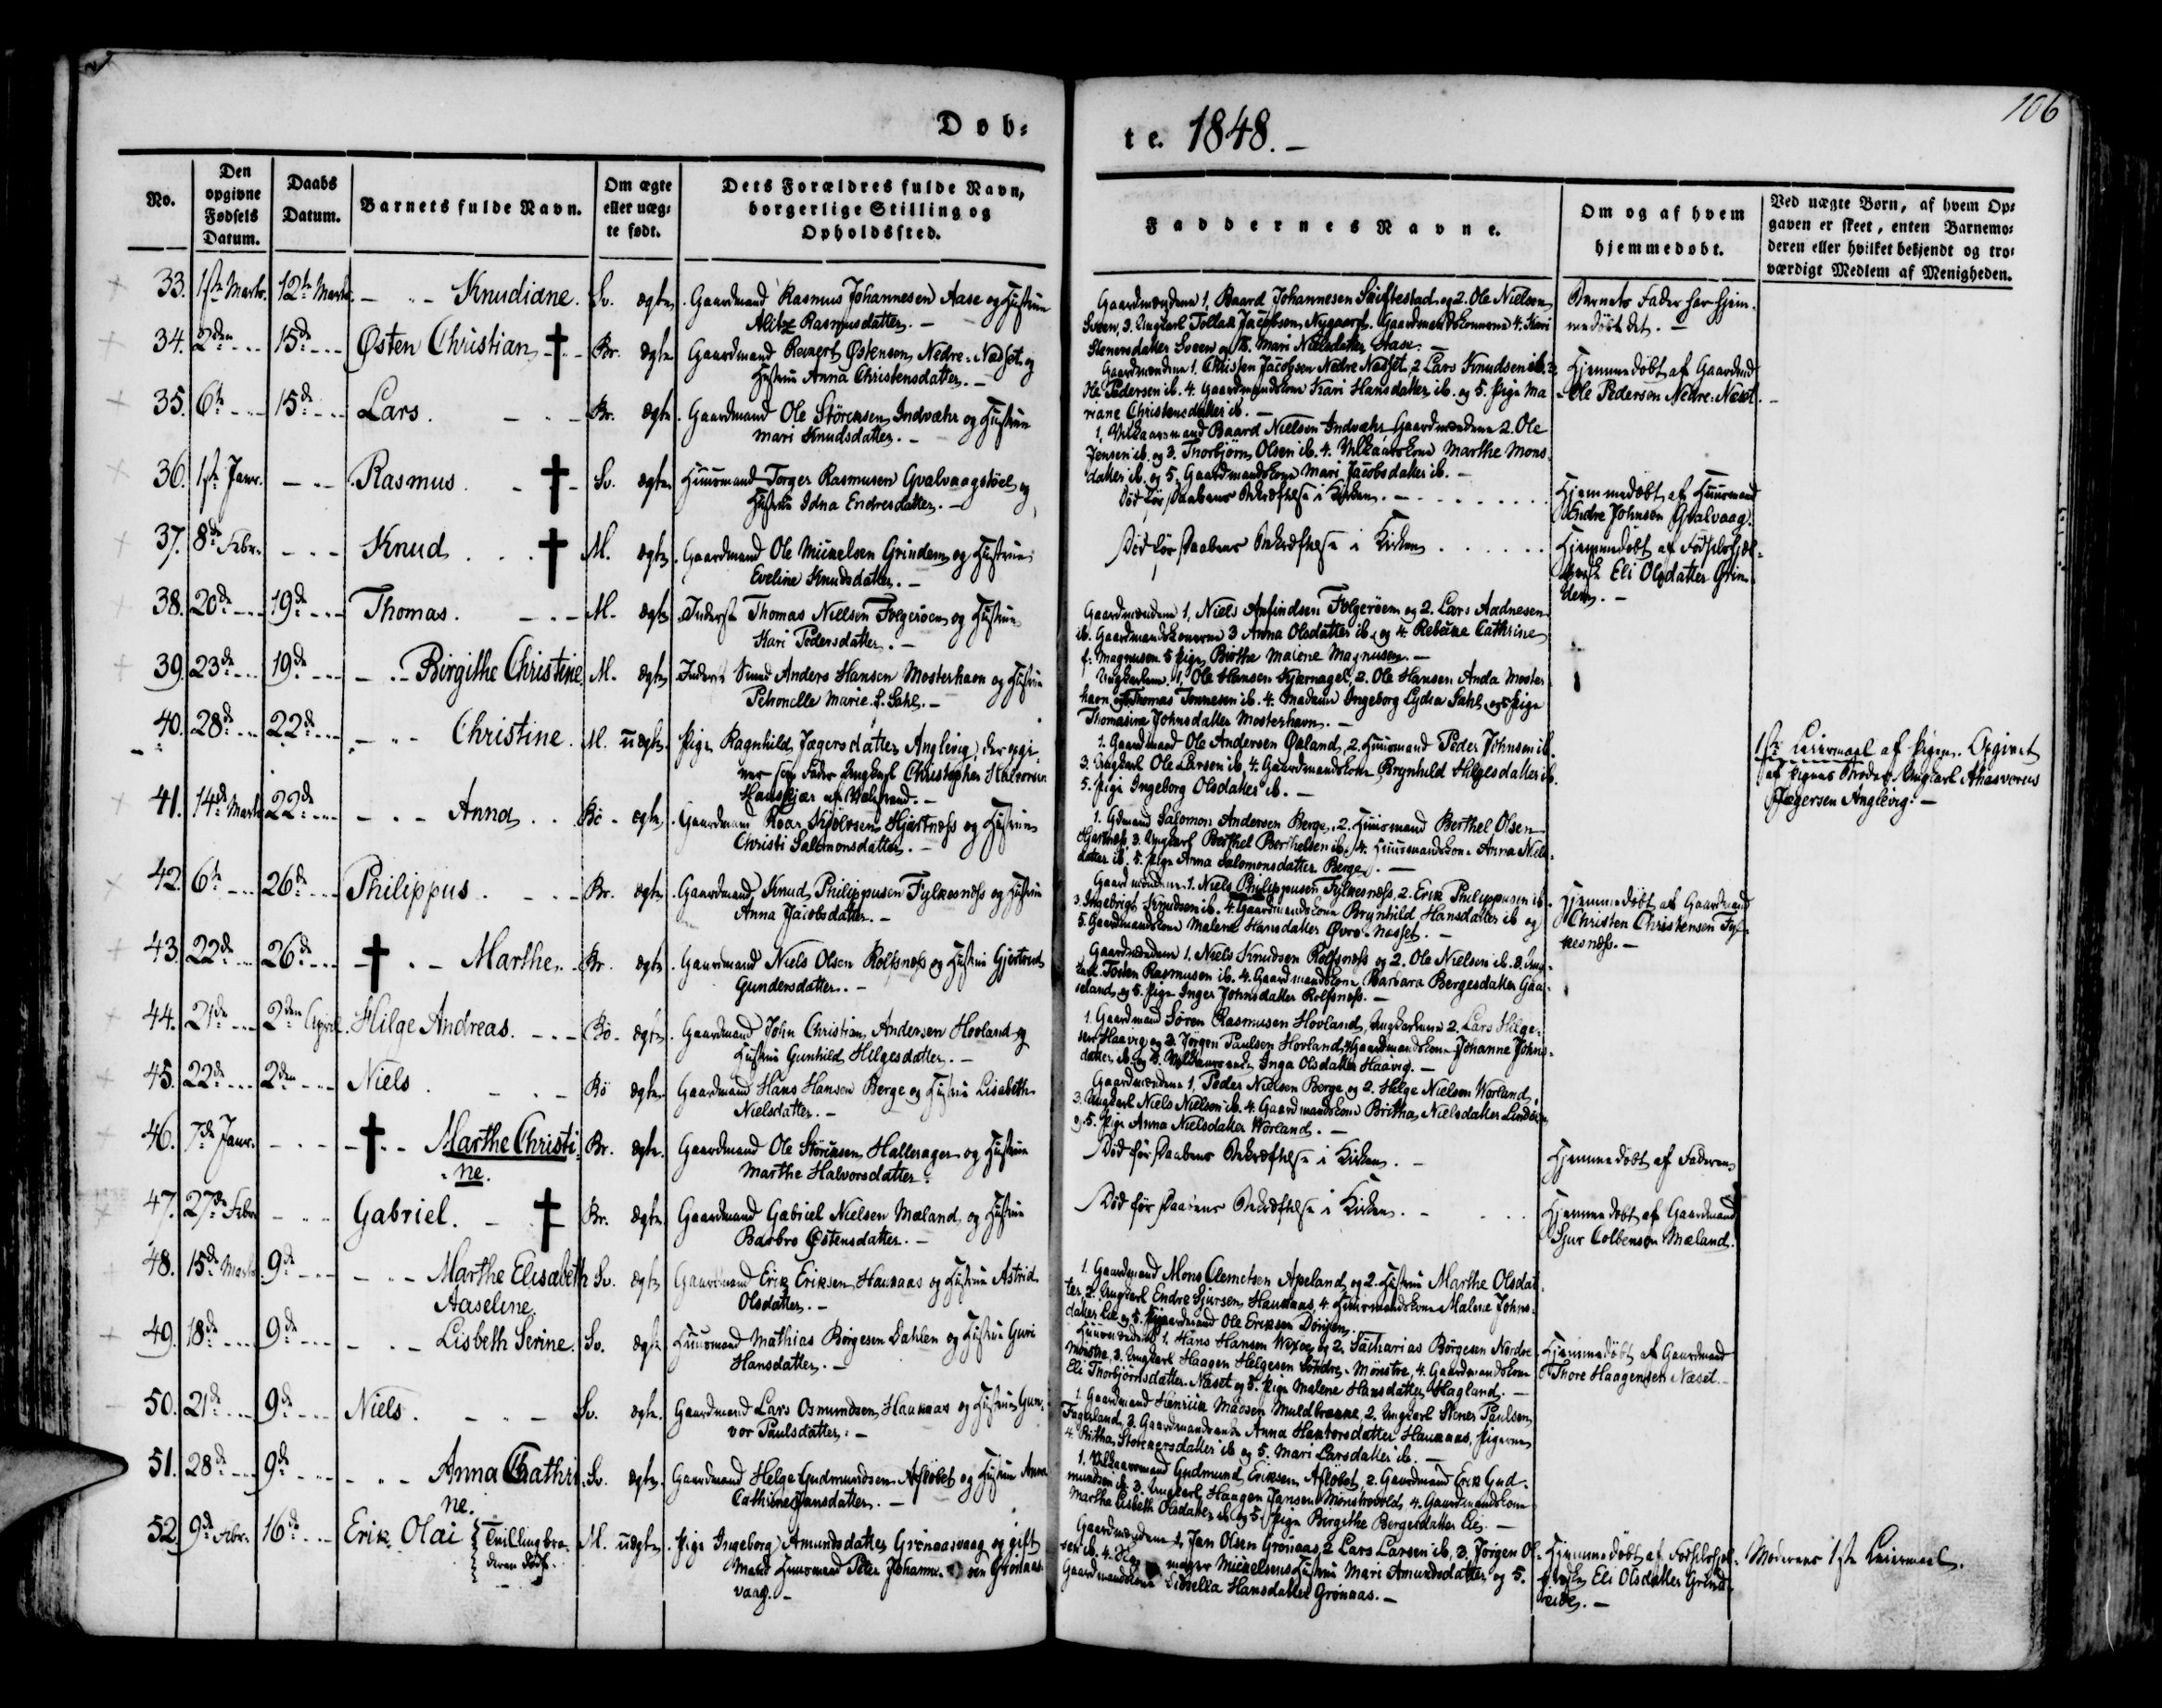 106
Døb-
te. 1848. –
No.
Den opgivne Fødsels Datum.
Daabs Datum.
Barnets fulde Navn.
Om ægte eller uæg-te født.
Dets Forældres fulde Navn, borgerlige Stilling og Opholdssted.
Faddernes Navne.
Om og af hvem hjemmedøbt.
Ved uægte Børn, af hvem Op-gaven er skeet, enten Barnemo-deren eller hvilket bekjendt og tro-værdigt Medlem af Menigheden.
33. 1ste Marts. 12te Marts. Knudiane. Sv. ægte. Gaardmand Rasmus Johannesen Aase og Hustrue
Alitze Rasmusdatter. –
Gaardmændene 1, Baard Johannesen og 2. Ole Nielsen
Sveen, 3. Ungkarl Tollak Jacobsen Nygaard. Gaardmandskonerne 4. Kari
Stenersdatter Sveen og 5. Mari Nielsdatter Aase. –
Barnets Fader har hjem-
medøbt det. –
34. 2den 15de Østen Christian Br. ægte Gaardmand Reinert Østensen Nedre-Nædset og
Hustrue Anna Christensdatter. –
Gaardmændene 1. Christen Jacobsen Nedre Nædset, 2 Lars Knudsen ib. 3.
Ole Pedersen ib. 4. Gaardmandskone Kari Hansdatter ib. og 5. Pige Ma
riane Christensdatter ib. –
Hjemmedøbt af Gaardmd
Ole Pedersen Nedre-Næset.
35. 6te 15de Lars. Br. ægte. Gaardmand Ole Størcksen Indvæhr og Hustrue
Mari Knudsdatter. –
1. Vilkaarsmand Baard Nielsen Indvæhr Gaardmændene 2. Ole
Jensen ib. og 3. Thorbjørn Olsen ib. 4. Vilkaarskone Marthe Mons-
datter ib. og 5. Gaardmandskone Mari Jacobsdatter ib. –
36. 1ste Janr. Rasmus. Sv. ægte. Huusmand Torger Rasmusen Qvalvaagstøel og
Hustrue Idna Endresdatter. –
Død før Daabens Bekræftelse i Kirken. –
Hjemmedøbt af Huusmand
Endre Johnsen Qvalvaag.
37. 8de Febr. Knud M. ægte. Gaardmand Ole Mickelsen Grindem og Hustrue
Eveline Knudsdatter. –
Død før Daabens Bekræftelse i Kirken
Hjemmedøbt af Fødselshjæl-
Eli Olsdatter Grin-
dem. –
38. 20de 19de Thomas. M. ægte Inderst Thomas Nielsen Folgerøen og Hustrue
Kari Pedersdatter. –
Gaardmændene 1, Niels Anfindsen Folgerøen og 2. Lars Aadnesen
ib. Gaardmandskonerne 3 Anna Olsdatter ib. og 4. Cathrine
f: Magnusen 5 Pige Birthe Malene Magnusen. –
39. 23de 19de Birgithe Christine. M. ægte Inderst Smed Anders Hansen Mosterhavn og Hustrue
Petronelle Marie Sahl. –
Ungkarlene 1, Ole Hansen Kjærnagel, 2. Ole Hansen Anda Moster-
havn og Thomas Tønnesen ib. 4. Madame Ingeborg Lydia Sahl og 5 Pige
Thomasine Johnsdatter Mosterhavn. –
40. 28de 22de Christine. M. uægte. Pige Ragnhild Jægersdatter Anglevig, der opgi-
ver som Fader Ungkarl Christopher Halvorsen
1. Gaardmand Ole Andersen Øvland, 2. Huusmand Peder Johnsen ib.
3. Ungkarl Ole Larsen ib. 4. Gaardmandskone Brynhild Helgesdatter ib.
5. Pige Ingeborg Olsdatter ib. –
1ste Leiermaal af Pigen. Opgivet
af Pigens Broder Ungkarl Ahasverus
Jægersen Anglevig. –
41. 14de Marts 22de Anna Bø. ægte. Gaardmand Roar Hjartnæss og Hustrue
Christi Salomonsdatter. –
1. Gdmand Salomon Andersen Berge, 2. Huusmand Berthel Olsen
Hjartnæs, 3. Ungkarl Berthel Berthelsen ib. 4. Huusmandskone Anna Niels-
datter ib. 5. Pige Anna Salomonsdatter Berge. –
42. 6te 26de Philippus. Br. ægte. Gaardmand Knud Philippusen Fylkesnæss og Hustrue
Anna Jacobsdatter. –
Gaardmændene 1. Niels Philippusen Fylkesnæss, 2. Erik Philippusen ib.
3. Ingebrigt Knudsen ib. 4. Gaardmandskone Brynhild Hansdatter ib og
5. Gaardmandskone Malene Hansdatter Øvre-Næsset. –
Hjemmedøbt af Gaardmand
Christen Christensen Fyl-
kesnæss. –
43. 22de 26de Marthe. Br. ægte. Gaardmand Niels Olsen Rolfsnæss og Hustrue Gjertrud
Gundersdatter. –
Gaardmændene 1. Niels Knudsen Rolfsnæss og 2. Ole Nielsen ib. 3. Ung-
karl Torsten Rasmusen ib. 4. Gaardmandskone Barbara Bergesdatter Gaa-
seland og 5. Pige Inger Johnsdatter Rolfsnæss. –
44. 21de 2den April. Hilge Andreas. Bø. ægte. Gaardmand John Christian Andersen Hovland og
Hustrue Gunhild Helgesdatter. –
1. Gaardmand Søren Rasmusen Hovland, Ungkarlene 2. Lars Helge-
sen Haavig og 3. Jørgen Paulsen Hovland, 4. Gaardmandskone Johanne Johns-
datter ib. og 5. Inga Olsdatter Haavig. –
45. 22de 2den Niels Bø ægte. Gaardmand Hans Hansen Berge og Hustrue Lisabeth
Nielsdatter. –
Gaardmændene 1, Peder Nielsen Berge og 2. Helge Nielsen Worland,
3. Ungkarl Niels Nielsen ib. 4. Gaardmandskone Britha Nielsdatter Lindøen
og 5. Pige Anna Nielsdatter Worland. –
46. 7de Janr. Marthe Christi-
ne. Br. ægte. Gaardmand Ole Størcksen Hallerager og Hustrue
Marthe Halvorsdatter. –
Død før Daabens Bekræftelse i Kirken. –
Hjemmedøbt af Faderen
47. 27de Febr. Gabriel. Br. ægte. Gaardmand Gabriel Nielsen Mæland og Hustrue
Barbro Østensdatter. –
Død før Daabens Bekræftelse i Kirken. –
Hjemmedøbt af Gaardmand
Sjur Colbensen Mæland.
48. 15de Marts 9de Marthe Elisabeth
Aaseline. Sv. ægte Gaardmand Erik Eriksen Haukaas og Hustrue Astrid
Olsdatter. –
1. Gaardmand Mons Clemetsen Apeland og 2. Hustrue Marthe Olsdat-
ter, 3. Ungkarl Endre Sjursen Haukaas, 4. Huusmandskone Malene Johns-
datter Lie og 5. Gaardmand Ole Eriksen
49. 18de 9de Lisbeth Serine. Sv. ægte Huusmand Mathias Børgesen Dahlen og Hustrue Guri
Hansdatter. –
Huusmændene 1. Hans Hansen og 2. Sacharias Børgesen Nordre
Mønstre, 3. Ungkarl Haagen Helgesen Søndre-Mønstre, 4. Gaardmandskone
Eli Thorbjørnsdatter Næset og 5. Pige Malene Hansdatter Hagland. –
Hjemmedøbt af Gaardmand
Thore Haagensen Næset. –
50. 21de 9de Niels. Sv. ægte. Gaardmand Lars Osmundsen Haukaas og Hustrue Gun-
vor Paulsdatter. –
1. Gaardmand Henrik Madsen 2. Ungkarl Stener Paulsen
Fagerland, 3. Gaardmandsenke Anna Haukaas, Pigerne
4. Britha ib og 5. Mari Larsdatter ib. –
51. 28de 9de Anna Chathri-
ne. Sv. ægte. Gaardmand Helge Gudmundsen Afløbet og Hustrue Anna
Cathrine Jansdatter. –
1. Vilkaarsmand Gudmund Eriksen Afløbet, 2. Gaardmand Erik Gud-
mundsen ib. 3. Ungkarl Haagen Jansen 4. Gaardmandskone
Martha Lisbeth Olsdatter ib. og 5. Pige Bergithe Bergesdatter Lie. –
52. 9de Febr. 16de Erik Olai Tvillingbro-
deren død. M. uægte. Pige Ingeborg Amundsdatter Grønaasvaag og gift
Mand Huusmand Peter Grønaas-
vaag. –
Gaardmændene 1, Jan Olsen Grønaas, 2 Lars Larsen ib, 3. Jørgen Ol-
sen ib. 4. Mickelsens Hustrue Mari Amundsdatter og 5.
Gaardmandskone Hansdatter Grønaas. –
Hjemmedøbt af Fødselshjel-
Eli Olsdatter Grind-
heim. –
Moderens 1ste Leiermaal.